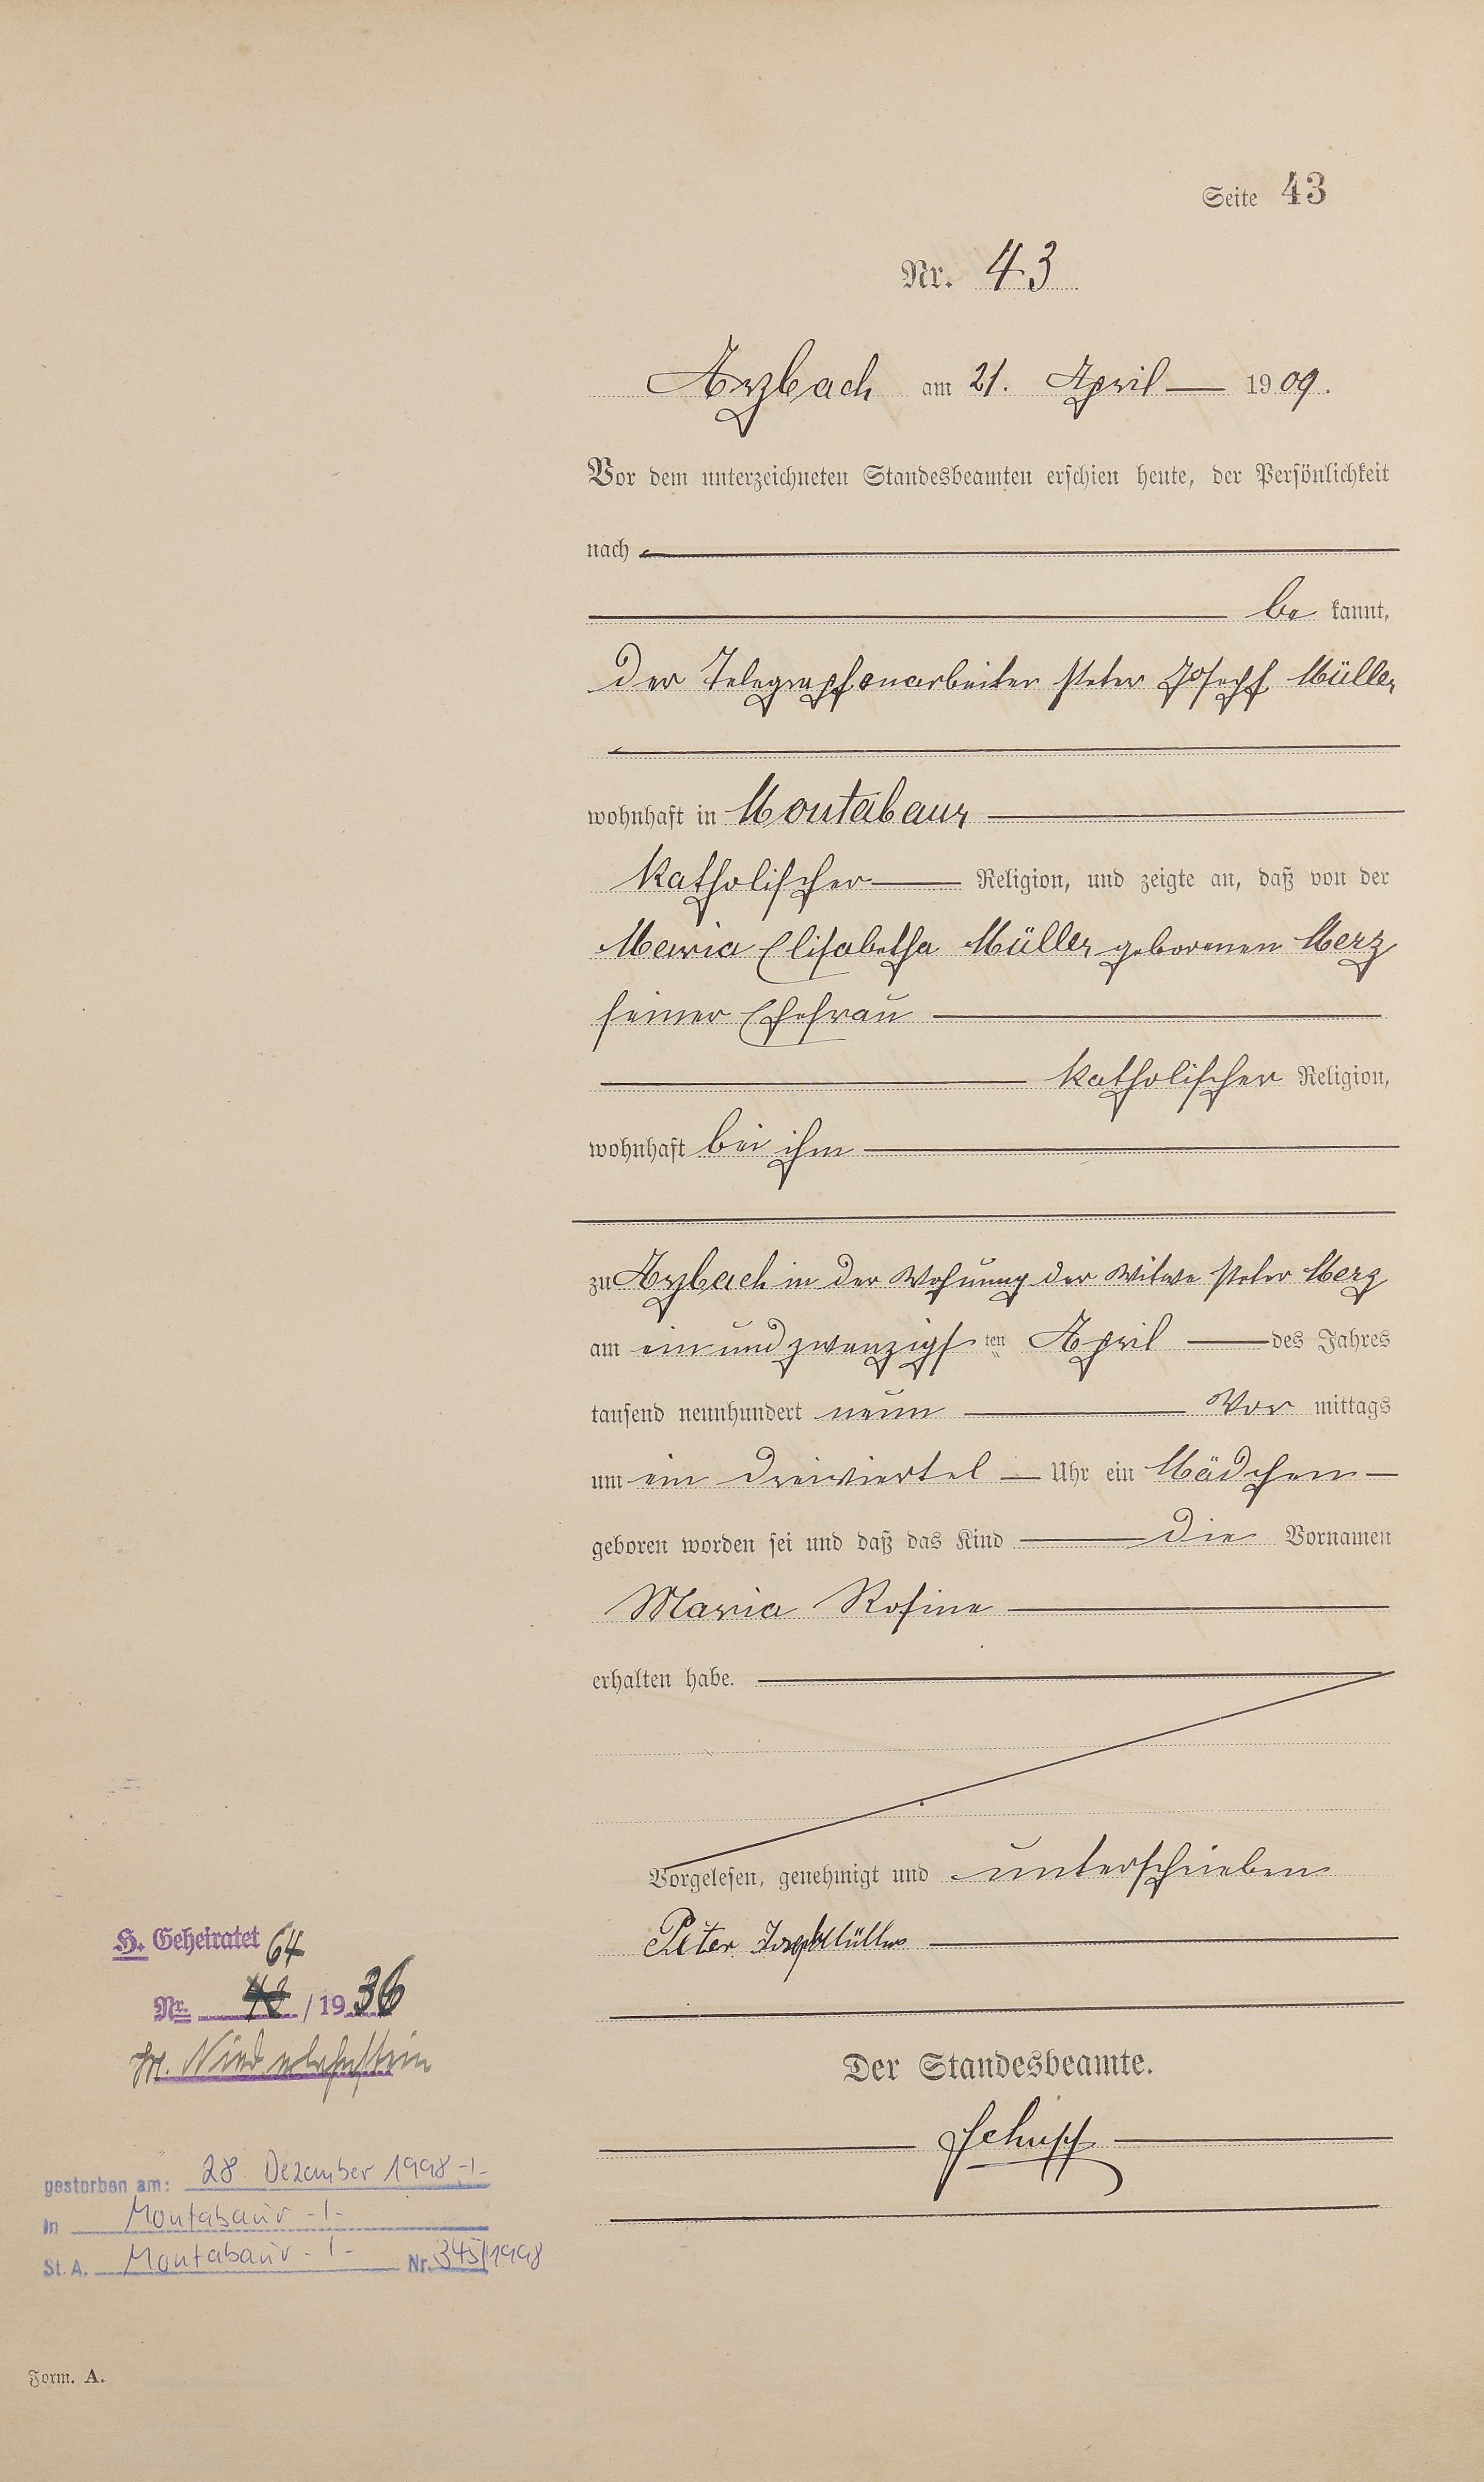 Seite 43
Nr. 43
Arzbach am 21. April 1909.
Vor dem unterzeichneten Standesbeamten erschien heute, der Persönlichkeit
nach
be kannt,
der Telegraphenarbeiter Peter Joseph Müller
wohnhaft in Montabaur
katholischer Religion, und zeigte an, daß von der
Maria Elisabetha Müller geborenen Merz
seiner Ehefrau
katholischer Religion,
wohnhaft bei ihm
zu Arzbach in der Wohnung der Witwe Peter Merz
am ein und zwanzigsten April des Jahres
tausend neunhundert neun Vor mittags
um ein dreiviertel Uhr ein Mädchen
geboren worden sei und daß das Kind die Vornamen
Maria Rosina
erhalten habe.
Vorgelesen, genehmigt und unterschrieben
Peter Joseph Müller
Der Standesbeamte.
H. Geheiratet 64
Nr. 48 / 1936
Niederlahnstein
gestorben am: 28. Dezember 1998 -/-
in Montabaur -/-
St. A. Montabaur -/- Nr. 345/1998
Form. A.